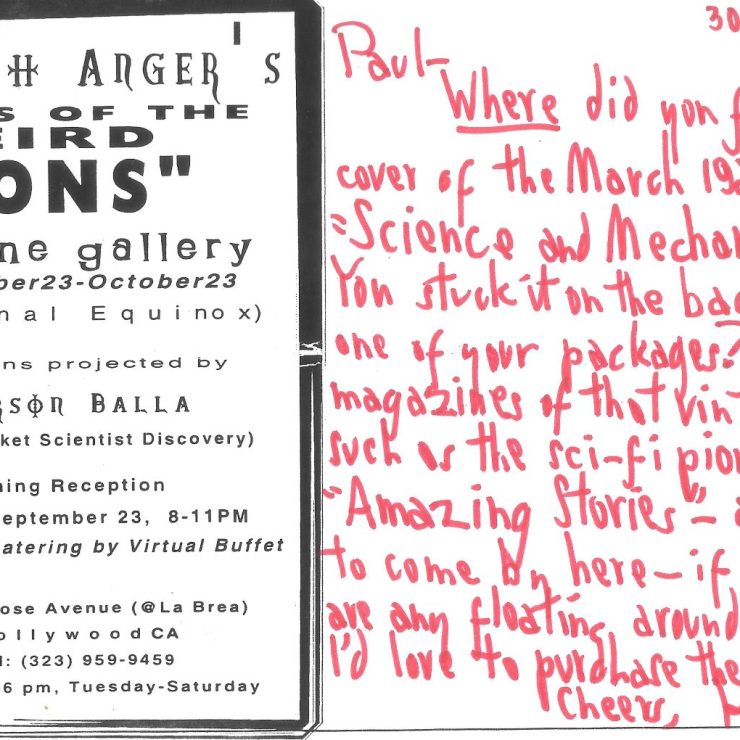 H ANGER's
S OF THE
EIRD
ONS"
ne gallery
ber23-October23
nal Equinox)
ns projected by
RSON BALLA
ket Scientist Discovery)
ning Reception
eptember 23, 8-11PM
atering by Virtual Buffet
ose Avenue (@La Brea)
ollywood CA
l: (323) 959-9459
6 pm, Tuesday-Saturday
30
Paul-
Where did you f
cover of the March 19
"Science and Mechan
You stuck it on the ba
one of your packages.
magazines of that vin
such as the sci-fi pion
"Amazing Stories" -
to come by here - if
are any floating around
I'd love to purchase the
Cheers,